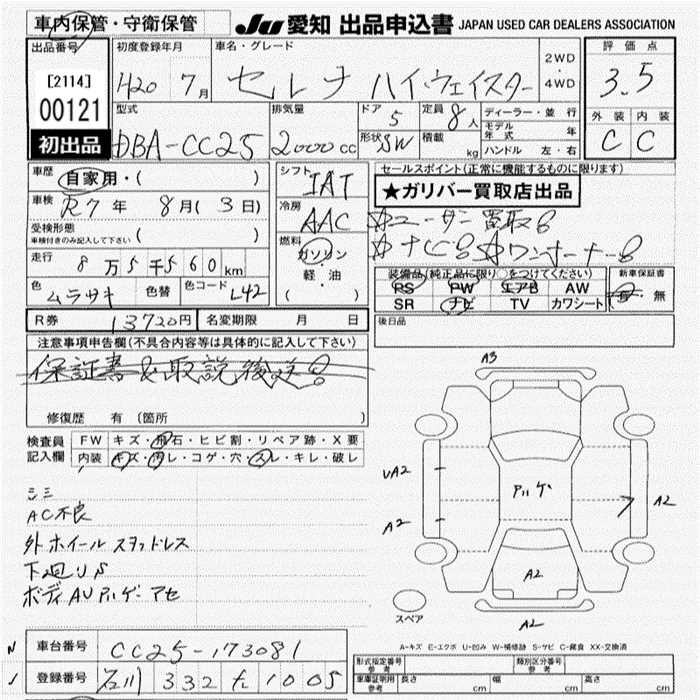 車内保管・守衛保管
JU 愛知 出品申込書 JAPAN USED CAR DEALERS ASSOCIATION
出品番号
[2114]
00121
初出品
初度登録年月
H20 7月
車名・グレード
セレナ ハイウェイスター
2WD・4WD
評価点
3.5
外装 内装
C C
型式
DBA-CC25
排気量
2000cc
ドア 5
定員 8人
形状 SW
積載 kg
ディーラー・並行
モデル年式 年
ハンドル 左・右
車歴 自家用・( )
車検 R7年 8月(3日)
受検形態
車検付きのみ記入して下さい ( )
走行 8万5千560km
色 ムラサキ 色替 色コード L42
シフト IAT
冷房 AAC
燃料
ガソリン・軽・油
( )
セールスポイント(正常に機能するものに限ります)
★ガリバー買取店出品
装備品(純正品に限り○をつけてください)
PS PW エアB AW
SR ナビ TV カワシート
新車保証書
有・無
後日品
R券 13720円 名変期限 月 日
注意事項申告欄(不具合内容等は具体的に記入して下さい)
保証書&取説後送!
修復歴 有 (箇所 )
検査員記入欄
FW キズ・飛石・ヒビ割・リペア跡・X要
内装 キズ・汚レ・コゲ・穴・スレ・キレ・破レ
シミ
AC不良
外ホイール スタッドレス
下廻りS
ボディAUアルゲーアセ
A3
UA2
A2
アルゲ
A2
A2
A2
スペア
A-キズ E-エクボ U-凹み W-補修跡 S-サビ C-腐食 XX-交換済
車台番号 CC25-173081
登録番号 石川 332 た 1005
形式指定番号 参考
類別区分番号 参考
車庫証明用 参考 長さ cm 幅 cm 高さ cm